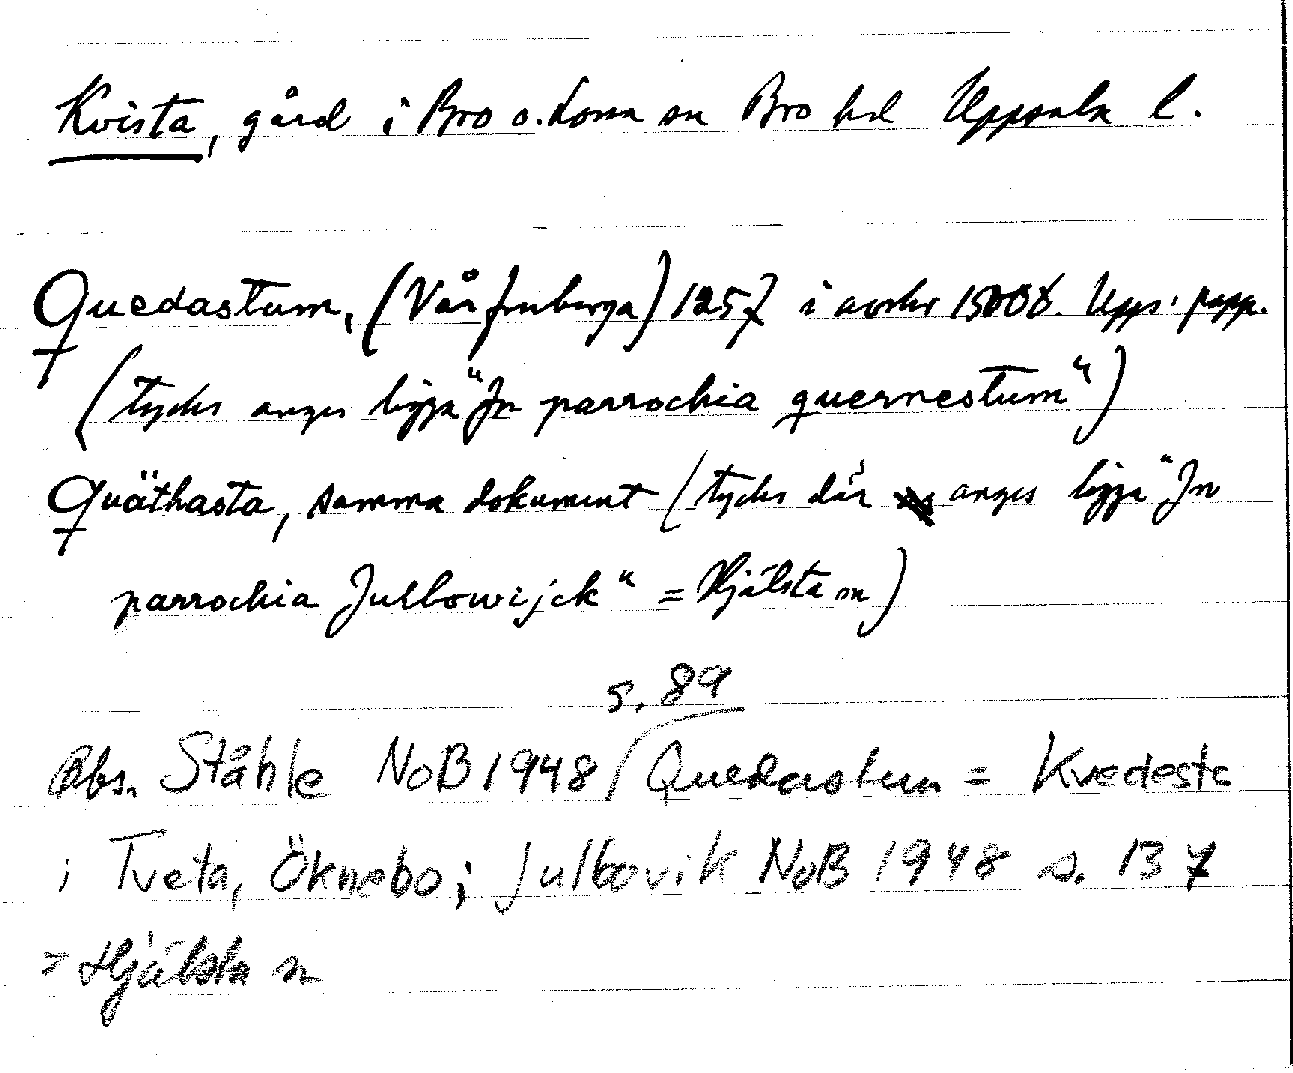 Kvista, gård i Bro o. Lossa sn Bro hd Uppsala l.
Quedastum, (Vårfruberga) 1257 i avskr 1500t. Upps. papp.
(tycks anges ligga "Jn parrochia quernestum")
Quäthasta, samma dokument (tycks där anges ligga "Jn
parrochia Julbowijck" = Hjälsta sn)
s. 89
Obs. Ståhle NoB 1948 / Quedastum = Kvedesta
i Tveta, Öknebo; Julbovik NoB 1948 s. 137
= Hjälsta sn